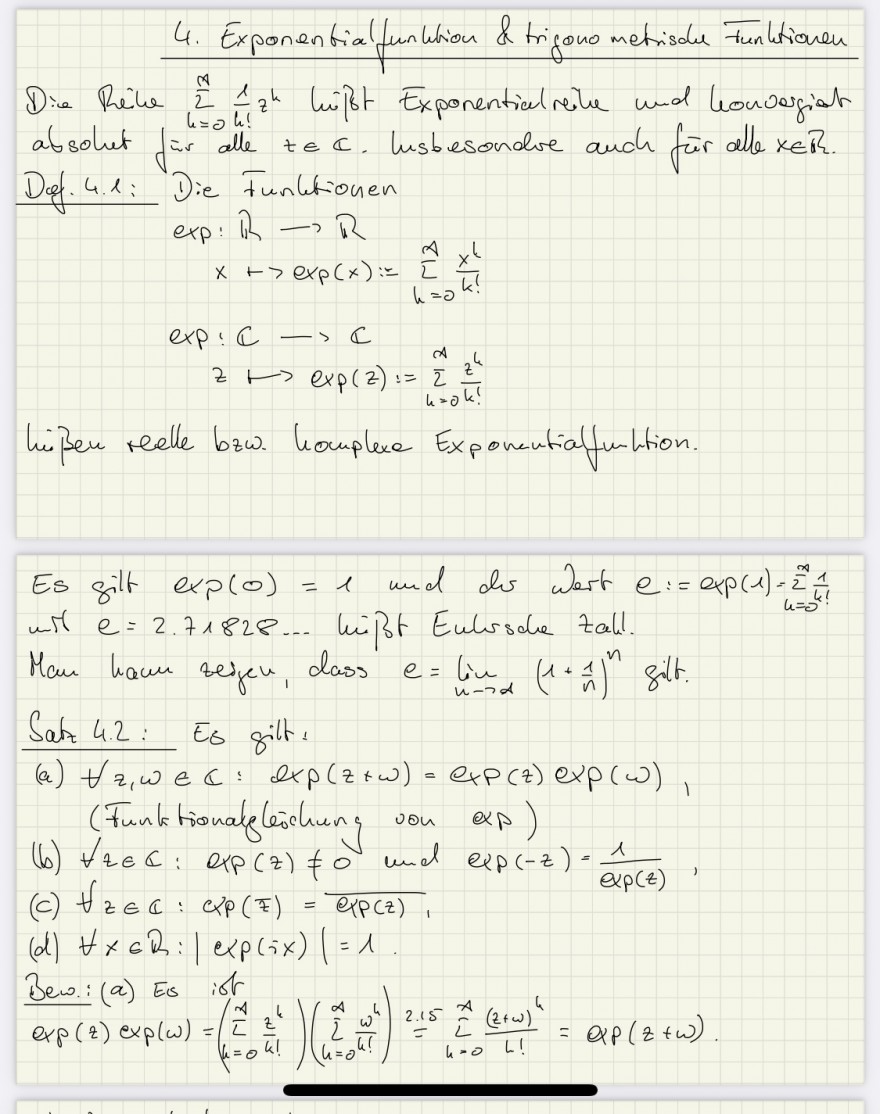 4. Exponentialfunktion & trigonometrische Funktionen
Die Reihe ∑_{k=0}^{∞} 1/k! z^k heißt Exponentialreihe und konvergiert
absolut für alle z ∈ ℂ. Insbesondere auch für alle x∈ℝ.
Def. 4.1: Die Funktionen
exp: ℝ → ℝ
x ↦ exp(x) := ∑_{k=0}^{∞} x^k/k!
exp: ℂ → ℂ
z ↦ exp(z) := ∑_{k=0}^{∞} z^k/k!
heißen reelle bzw. komplexe Exponentialfunktion.
Es gilt exp(0) = 1 und der Wert e := exp(1) = ∑_{k=0}^{∞} 1/k!
mit e = 2.71828... heißt Eulersche Zahl.
Man kann zeigen, dass e = lim_{n→∞} (1 + 1/n)^n gilt.
Satz 4.2: Es gilt:
(a) ∀ z,w ∈ ℂ: exp(z+w) = exp(z) exp(w),
(Funktionalgleichung von exp)
(b) ∀ z ∈ ℂ: exp(z) ≠ 0 und exp(-z) = 1/exp(z),
(c) ∀ z ∈ ℂ: exp(z̅) = \overline{exp(z)},
(d) ∀ x ∈ ℝ: |exp(ix)| = 1.
Bew.: (a) Es ist
exp(z) exp(w) = (∑_{k=0}^{∞} z^k/k!) (∑_{k=0}^{∞} w^k/k!) =^{2.15} ∑_{k=0}^{∞} (z+w)^k/k! = exp(z+w).